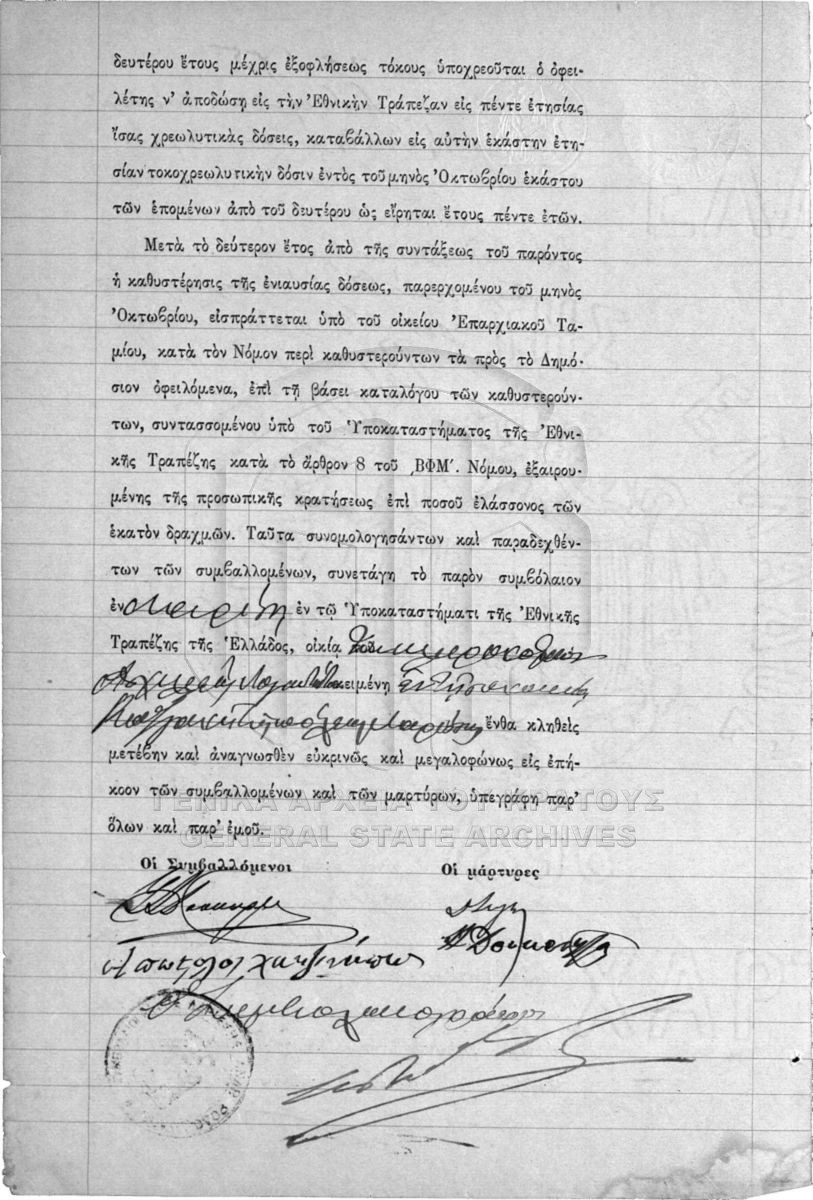 δευτέρου ἔτους μέχρις ἐξοφλήσεως τόκους ὑποχρεοῦται ὁ ὀφει-
λέτης ν' ἀποδώσῃ εἰς τὴν Ἐθνικὴν Τράπεζαν εἰς πέντε ἐτησίας
ἴσας χρεωλυτικὰς δόσεις, καταβάλλων εἰς αὐτὴν ἑκάστην ἐτη-
σίαν τοκοχρεωλυτικὴν δόσιν ἐντὸς τοῦ μηνὸς Ὀκτωβρίου ἑκάστου
τῶν ἑπομένων ἀπὸ τοῦ δευτέρου ὡς εἴρηται ἔτους πέντε ἐτῶν.
Μετὰ τὸ δεύτερον ἔτος ἀπὸ τῆς συντάξεως τοῦ παρόντος
ἡ καθυστέρησις τῆς ἐνιαυσίας δόσεως, παρερχομένου τοῦ μηνὸς
Ὀκτωβρίου, εἰσπράττεται ὑπὸ τοῦ οἰκείου Ἐπαρχιακοῦ Τα-
μίου, κατὰ τὸν Νόμον περὶ καθυστερούντων τὰ πρὸς τὸ Δημό-
σιον ὀφειλόμενα, ἐπὶ τῇ βάσει καταλόγου τῶν καθυστερούν-
των, συντασσομένου ὑπὸ τοῦ Ὑποκαταστήματος τῆς Ἐθνι-
κῆς Τραπέζης κατὰ τὸ ἄρθρον 8 τοῦ ͵ΒΦΜ΄. Νόμου, ἐξαιρου-
μένης τῆς προσωπικῆς κρατήσεως ἐπὶ ποσοῦ ἐλάσσονος τῶν
ἑκατὸν δραχμῶν. Ταῦτα συνομολογησάντων καὶ παραδεχθέν-
των τῶν συμβαλλομένων, συνετάγη τὸ παρὸν συμβόλαιον
ἐν Λαρίσῃ ἐν τῷ Ὑποκαταστήματι τῆς Ἐθνικῆς
Τραπέζης τῆς Ἑλλάδος, οἰκίᾳ
κειμένῃ
Λαρίσης ἔνθα κληθεὶς
μετέβην καὶ ἀναγνωσθὲν εὐκρινῶς καὶ μεγαλοφώνως εἰς ἐπή-
κοον τῶν συμβαλλομένων καὶ τῶν μαρτύρων, ὑπεγράφη παρ'
ὅλων καὶ παρ' ἐμοῦ.
ΓΕΝΙΚΑ ΑΡΧΕΙΑ ΤΟΥ ΚΡΑΤΟΥΣ
GENERAL STATE ARCHIVES
Οἱ Συμβαλλόμενοι Οἱ μάρτυρες